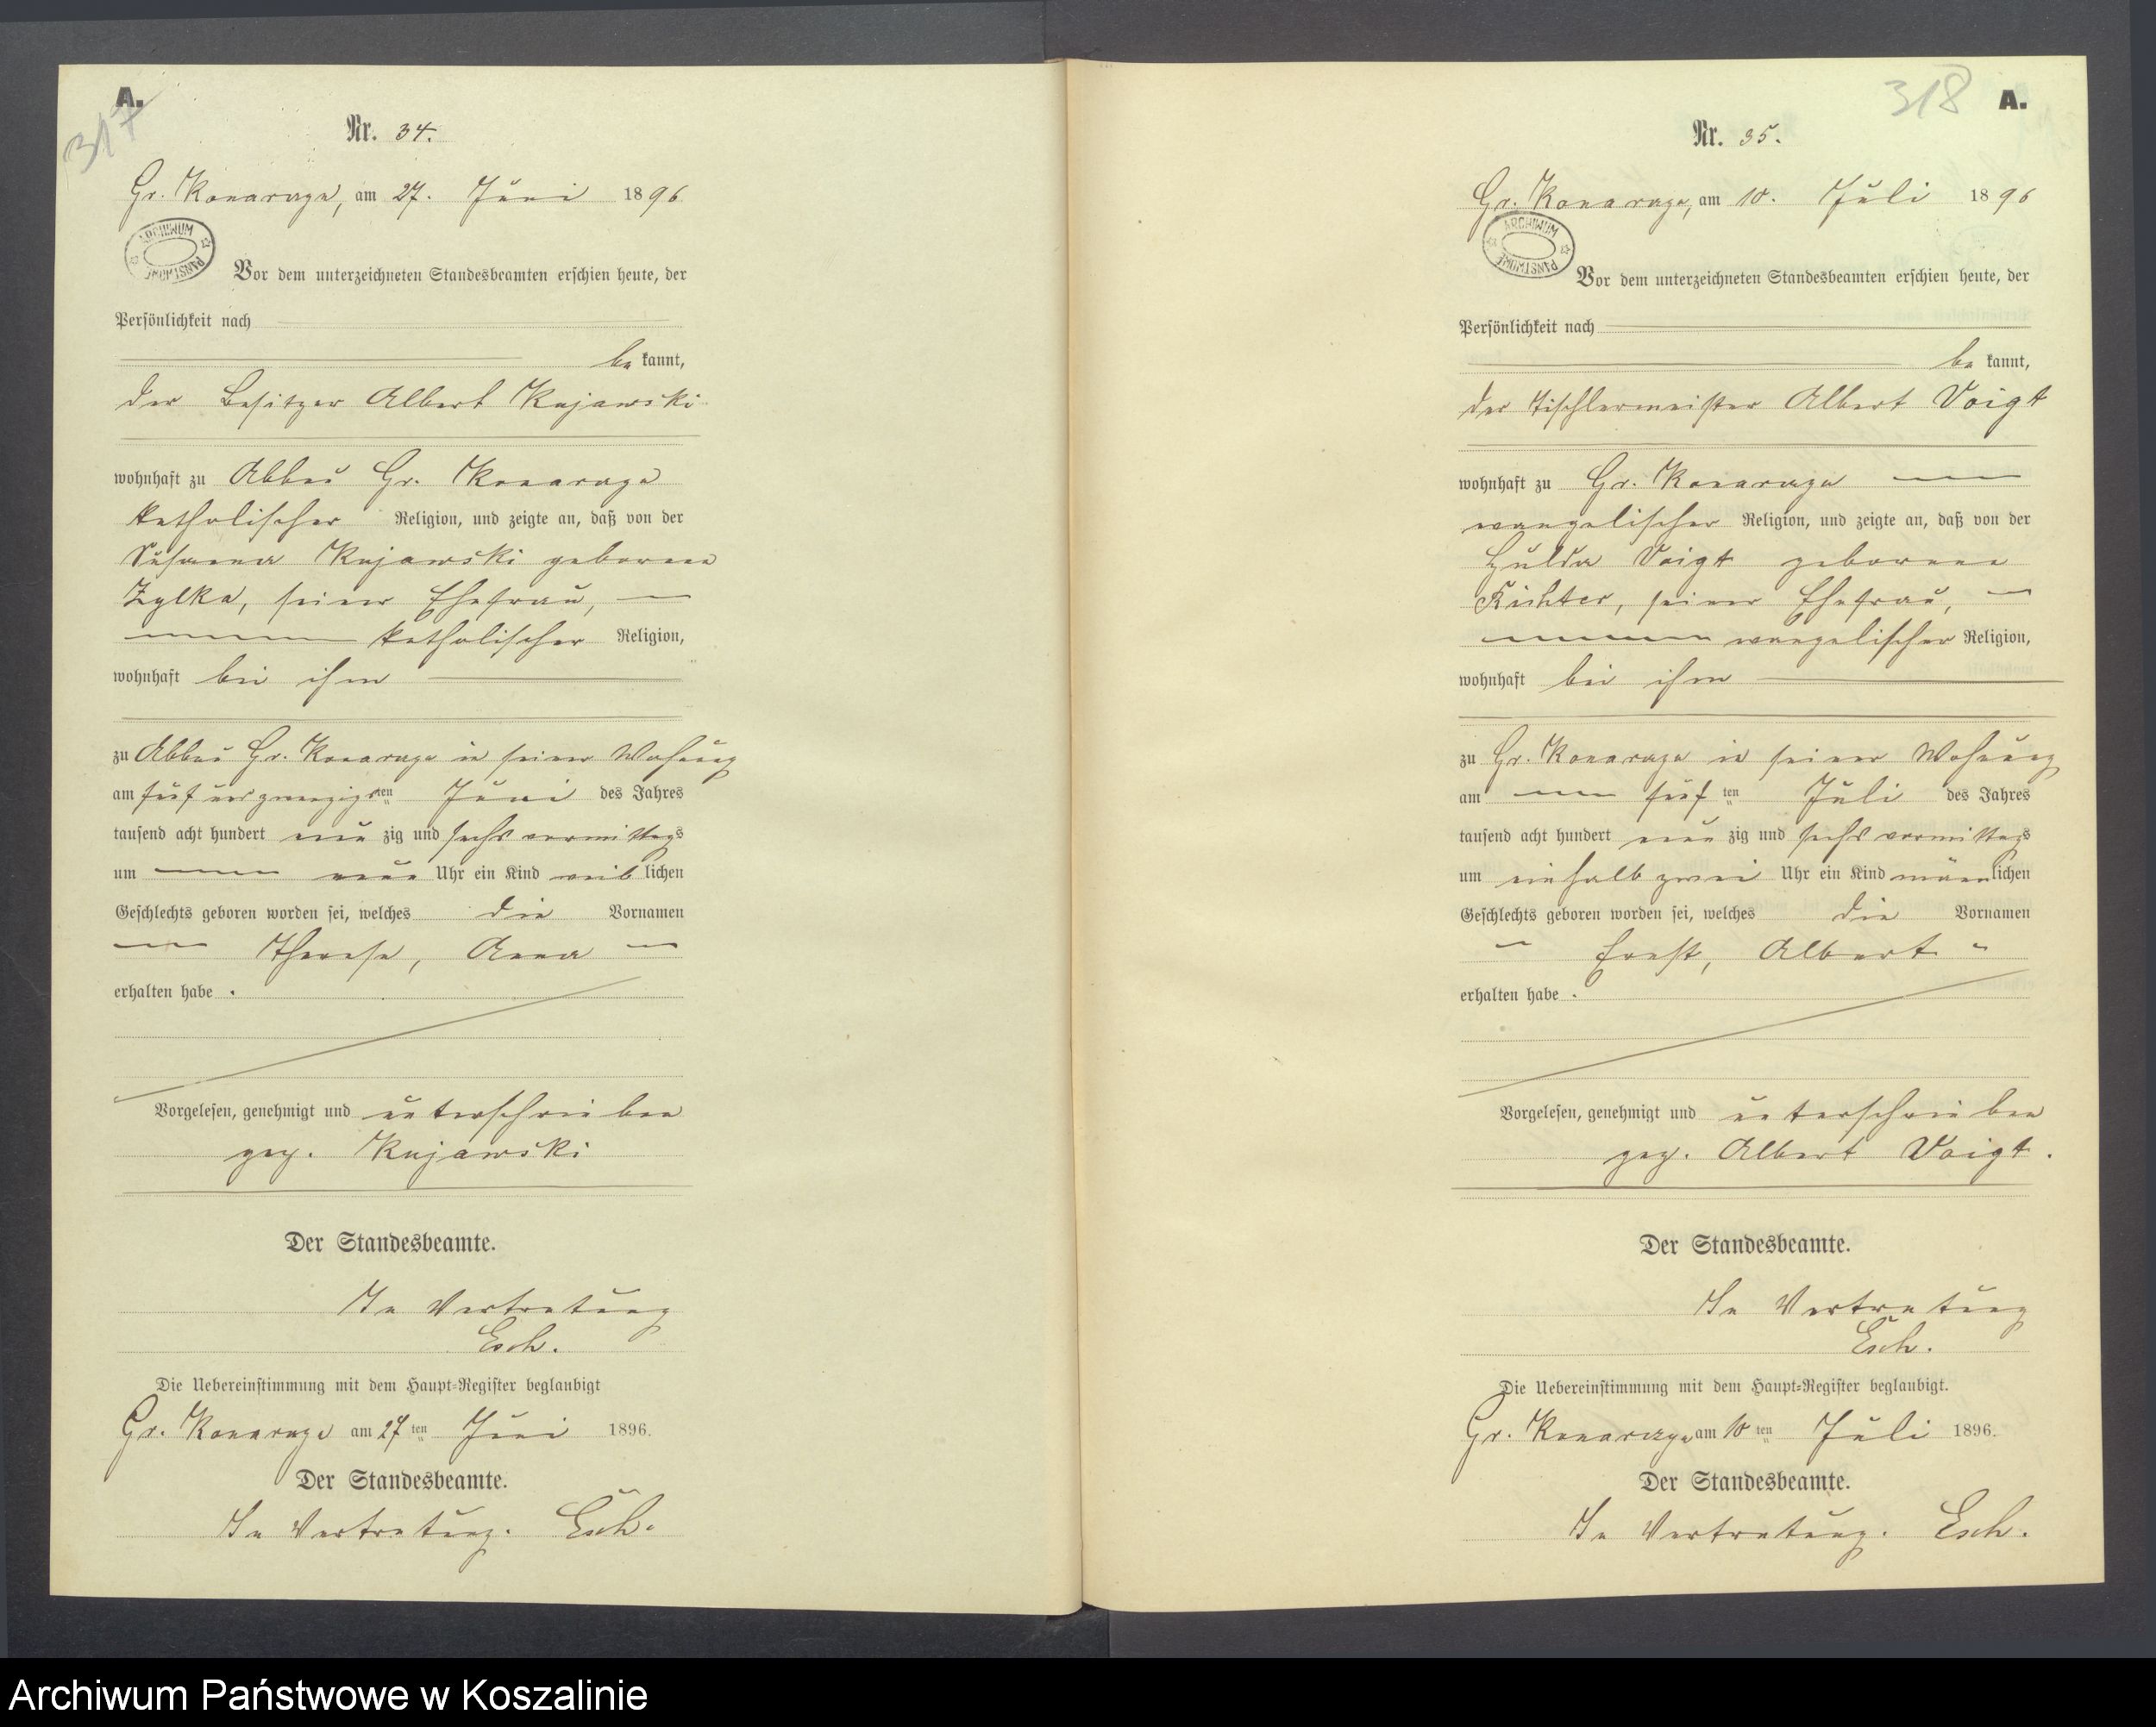 A.
317
Nr. 34.
Gr. Konarczyn, am 27. Juni 1896
ARCHIWUM PAŃSTWOWE
Vor dem unterzeichneten Standesbeamten erschien heute, der
Persönlichkeit nach
be kannt,
der Besitzer Albert Kujawski
wohnhaft zu Abbau Gr. Konarczyn
katholischer Religion, und zeigte an, daß von der
Susanna Kujawski geborenen
Zylka, seiner Ehefrau,
katholischer Religion,
wohnhaft bei ihm
zu Abbau Gr. Konarczyn in seiner Wohnung
am fünf und zwanzigsten Juni des Jahres
tausend acht hundert neun zig und sechs vormittags
um neun Uhr ein Kind weib lichen
Geschlechts geboren worden sei, welches die Vornamen
Therese, Anna
erhalten habe .
Vorgelesen, genehmigt und unterschrieben
gez. Kujawski
Der Standesbeamte.
In Vertretung
Esch.
Die Uebereinstimmung mit dem Haupt-Register beglaubigt
Gr. Konarczyn am 27 ten Juni 1896.
Der Standesbeamte.
In Vertretung. Esch.
318 A.
Nr. 35.
Gr. Konarczyn, am 10. Juli 1896
ARCHIWUM PAŃSTWOWE
Vor dem unterzeichneten Standesbeamten erschien heute, der
Persönlichkeit nach
be kannt,
der Tischlermeister Albert Voigt
wohnhaft zu Gr. Konarczyn
evangelischer Religion, und zeigte an, daß von der
Hulda Voigt geborenen
Richter, seiner Ehefrau,
evangelischer Religion,
wohnhaft bei ihm
zu Gr. Konarczyn in seiner Wohnung
am fünf ten Juli des Jahres
tausend acht hundert neun zig und sechs vormittags
um einhalb zwei Uhr ein Kind männlichen
Geschlechts geboren worden sei, welches die Vornamen
Ernst, Albert
erhalten habe .
Vorgelesen, genehmigt und unterschrieben
gez. Albert Voigt.
Der Standesbeamte.
In Vertretung
Esch.
Die Uebereinstimmung mit dem Haupt-Register beglaubigt.
Gr. Konarczyn am 10 ten Juli 1896.
Der Standesbeamte.
In Vertretung. Esch.
Archiwum Państwowe w Koszalinie